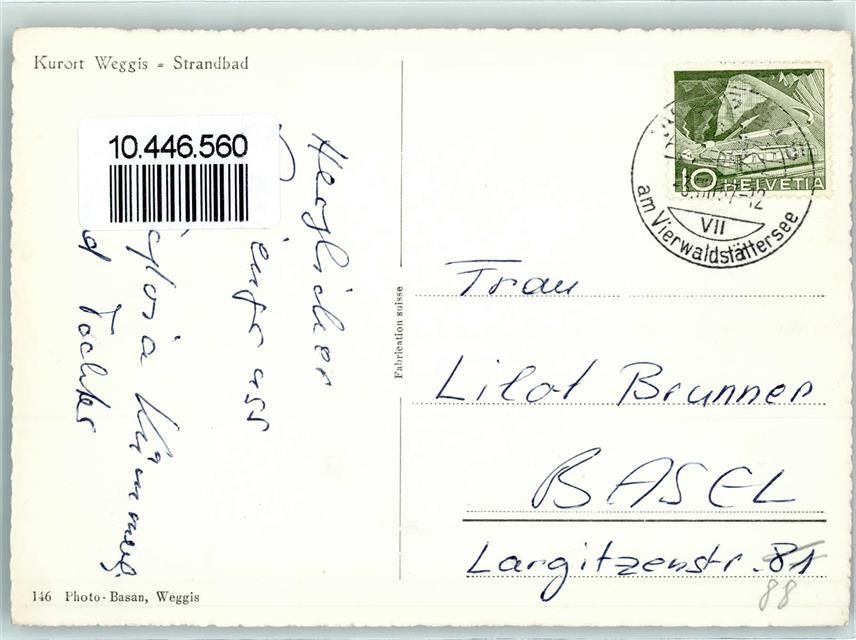 Kurort Weggis - Strandbad
10.446.560
Herzlicher
Tochter
146 Photo-Basan, Weggis
Fabrication suisse
10 HELVETIA
VII
am Vierwaldstättersee
Frau
Lilot Brunner
BASEL
Largitzenstr. 81
88